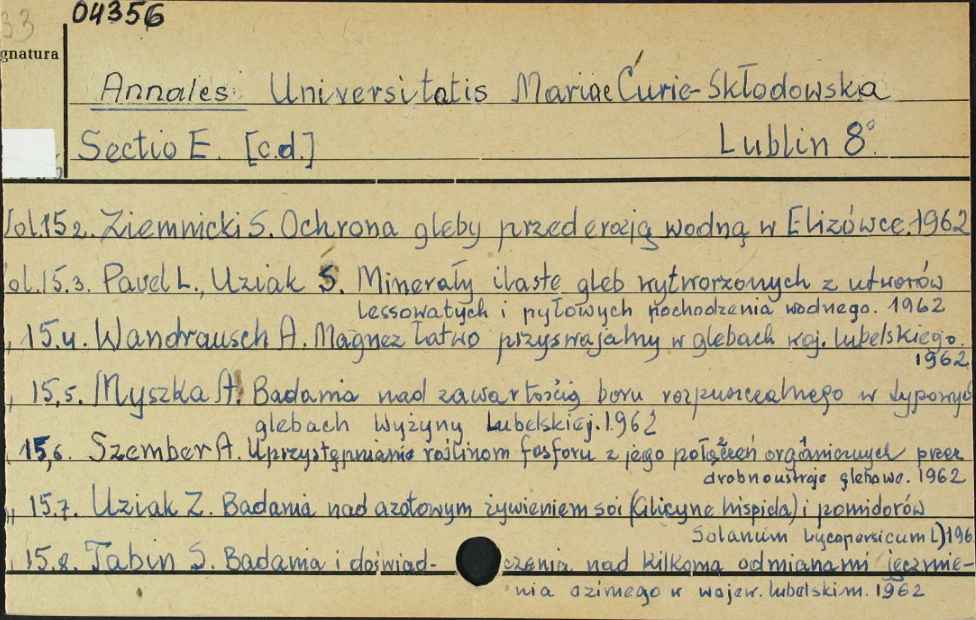 33 04356
gnatura
Annales Universitatis Mariae Curie-Skłodowska
Sectio E. [c.d.] Lublin 8°.
Vol. 15 2. Ziemnicki S. Ochrona gleby przed erozją wodną w Elizówce. 1962
Vol. 15.3. Pavel L., Uziak S. Minerały ilaste gleb wytworzonych z utworów
lessowatych i pyłowych pochodzenia wodnego. 1962
„ 15.4. Wandrausch A. Magnez łatwo przyswajalny w glebach woj. lubelskiego.
1962
„ 15,5. Myszka A. Badania nad zawartością boru rozpuszczalnego w typowych
glebach Wyżyny Lubelskiej. 1962
„ 15,6. Szember A. Uprzystępnianie roślinom fosforu z jego połączeń organicznych przez
drobnoustroje glebowe. 1962
„ 15.7. Uziak Z. Badania nad azotowym żywieniem soi (Glicyne hispida) i pomidorów
Solanum lycopersicum L) 196
„ 15.8. Tabin S. Badania i doświad- czenia nad kilkoma odmianami jęczmie-
nia ozimego w wojew. lubelskim. 1962